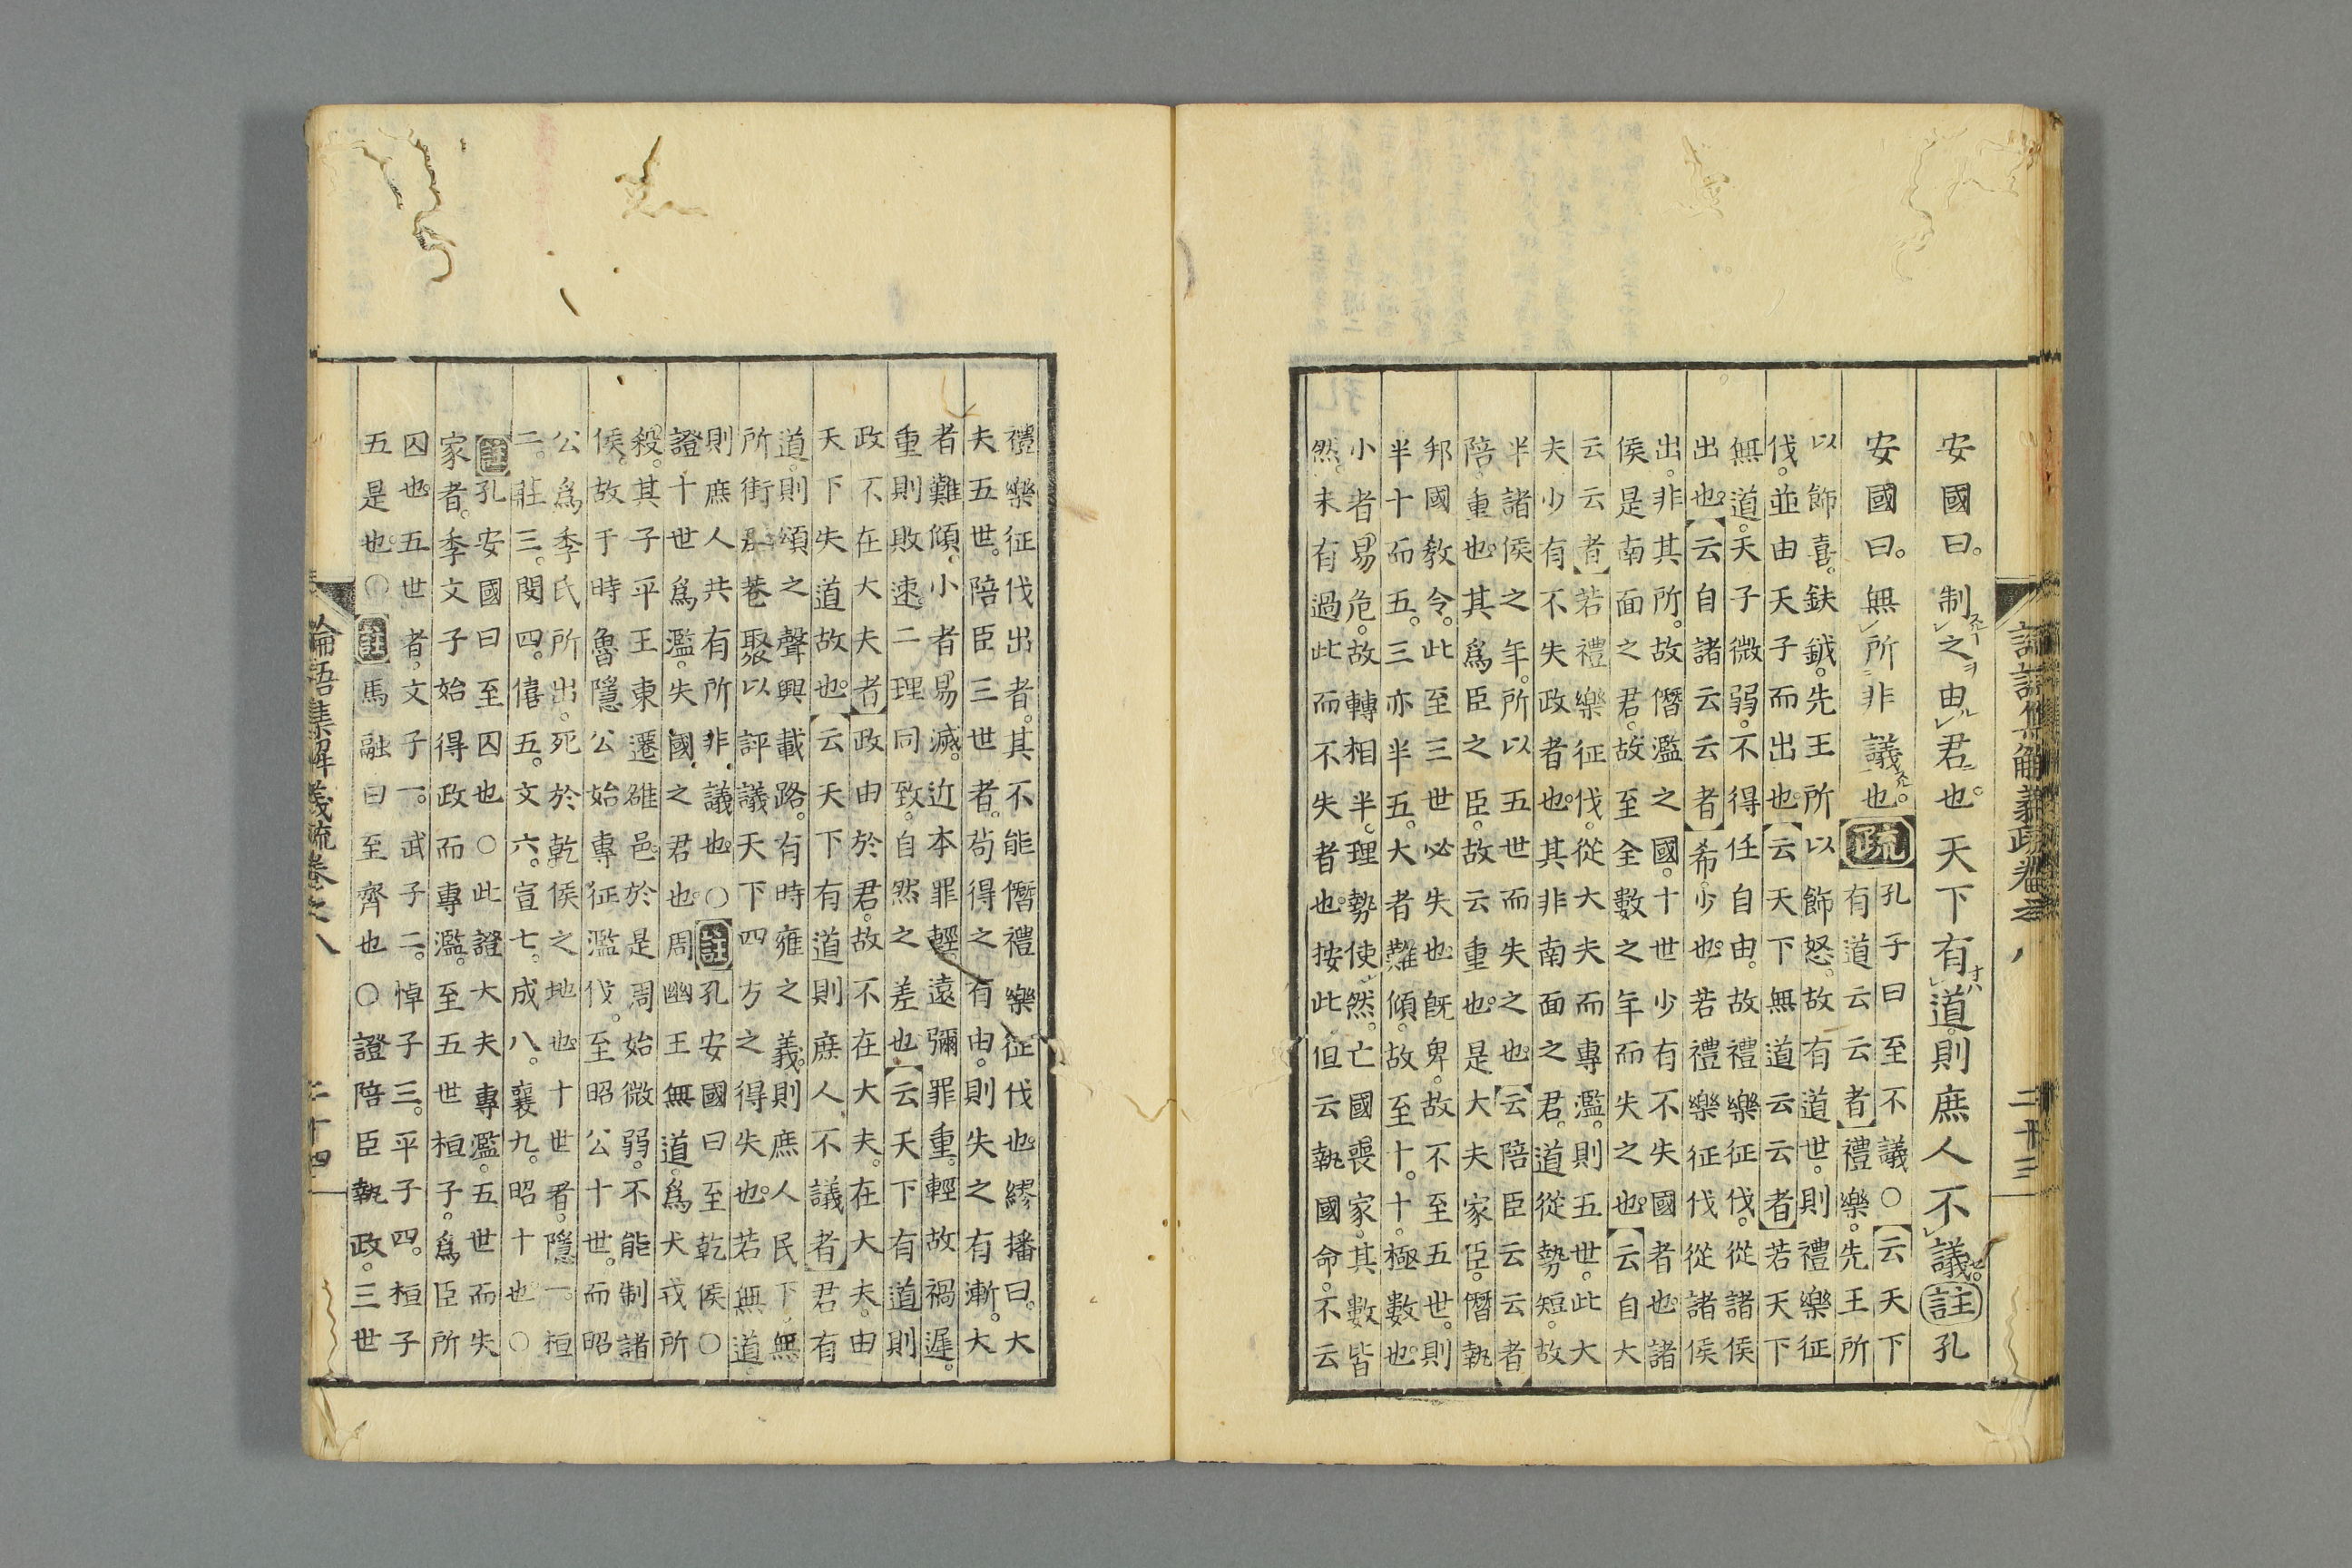 論語集解義疏卷之八 二十三
安國曰。制之由君也。天下有道則庶人不議。註孔
安國曰。無所非議也。疏
孔子曰至不議〇云天下
有道云云者禮樂。先王所
以飾喜。鈇鉞。先王所以飾怒。故有道世。則禮樂征
伐。並由天子而出也。云天下無道云云者若天下
無道。天子微弱。不得任自由。故禮樂征伐。從諸侯
出也。云自諸云云者希。少也。若禮樂征伐從諸侯
出。非其所。故僭濫之國。十世少有不失國者也。諸
侯是南面之君。故至全數之年而失之也。云自大
云云者若禮樂征伐。從大夫而專濫。則五世。此大
夫少有不失政者也。其非南面之君。道從勢短。故
半諸侯之年。所以五世而失之也。云陪臣云云者
陪。重也。其爲臣之臣。故云重也。是大夫家臣。僭執
邦國教令。此至三世必失也。既卑。故不至五世。則
半十而五。三亦半五。大者難傾。故至十。十。極數也。
小者易危。故轉相半。理勢使然。亡國喪家。其數皆
然。未有過此而不失者也。按此但云執國命。不云
禮樂征伐出者。其不能僭禮樂征伐也。繆播曰。大
夫五世。陪臣三世者。苟得之有由。則失之有漸。大
者難傾。小者易滅。近本罪輕。遠彌罪重。輕故禍遲。
重則敗速。二理同致。自然之差也。云天下有道則
政不在大夫者政由於君。故不在大夫。在大夫。由
天下失道故也。云天下有道則庶人不議者君有
道。則頌之聲興載路。有時雍之義。則庶人民下。無
所街群巷聚以評議天下四方之得失也。若無道。
則庶人共有所非議也。〇註孔安國曰至乾侯〇
證十世爲濫。失國之君也。周幽王無道。爲犬戎所
殺。其子平王東遷雒邑。於是周始微弱。不能制諸
侯。故于時魯隱公始專征濫伐。至昭公十世。而昭
公爲季氏所出。死於乾侯之地也。十世者。隱一。桓
二。莊三。閔四。僖五。文六。宣七。成八。襄九。昭十也。〇
註孔安國曰至囚也〇此證大夫專濫。五世而失
家者。季文子始得政而專濫。至五世桓子。爲臣所
囚也。五世者。文子一。武子二。悼子三。平子四。桓子
五是也。〇註馬融曰至齊也〇證陪臣執政。三世
論語集解義疏卷之八 二十四